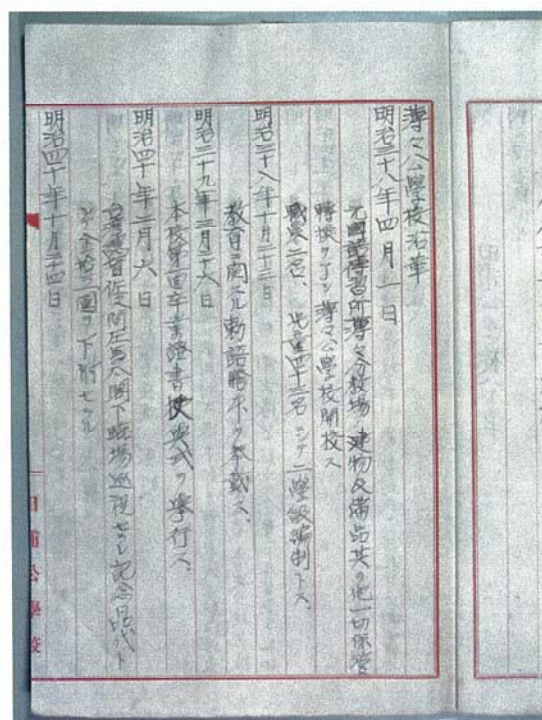 薄々公學校沿革
明治三十八年四月一日
元國語傳習所薄々分教場建物及備品其の他一切保管
轉換ヲ了シ薄々公學校開校ス
職員二名、兒童四十二名ニシテ二學級編制トス、
明治三十八年十月十三日
教育ニ関スル勅語謄本ヲ奉戴ス、
明治三十九年三月二十八日
本校第一回卒業證書授與式ヲ擧行ス、
明治四十年二月六日
佐久間左馬太閣下臨場巡視セラレ記念品代ト
金拾圓ヲ下附セラル
明治四十年十月二十四日
田浦公學校